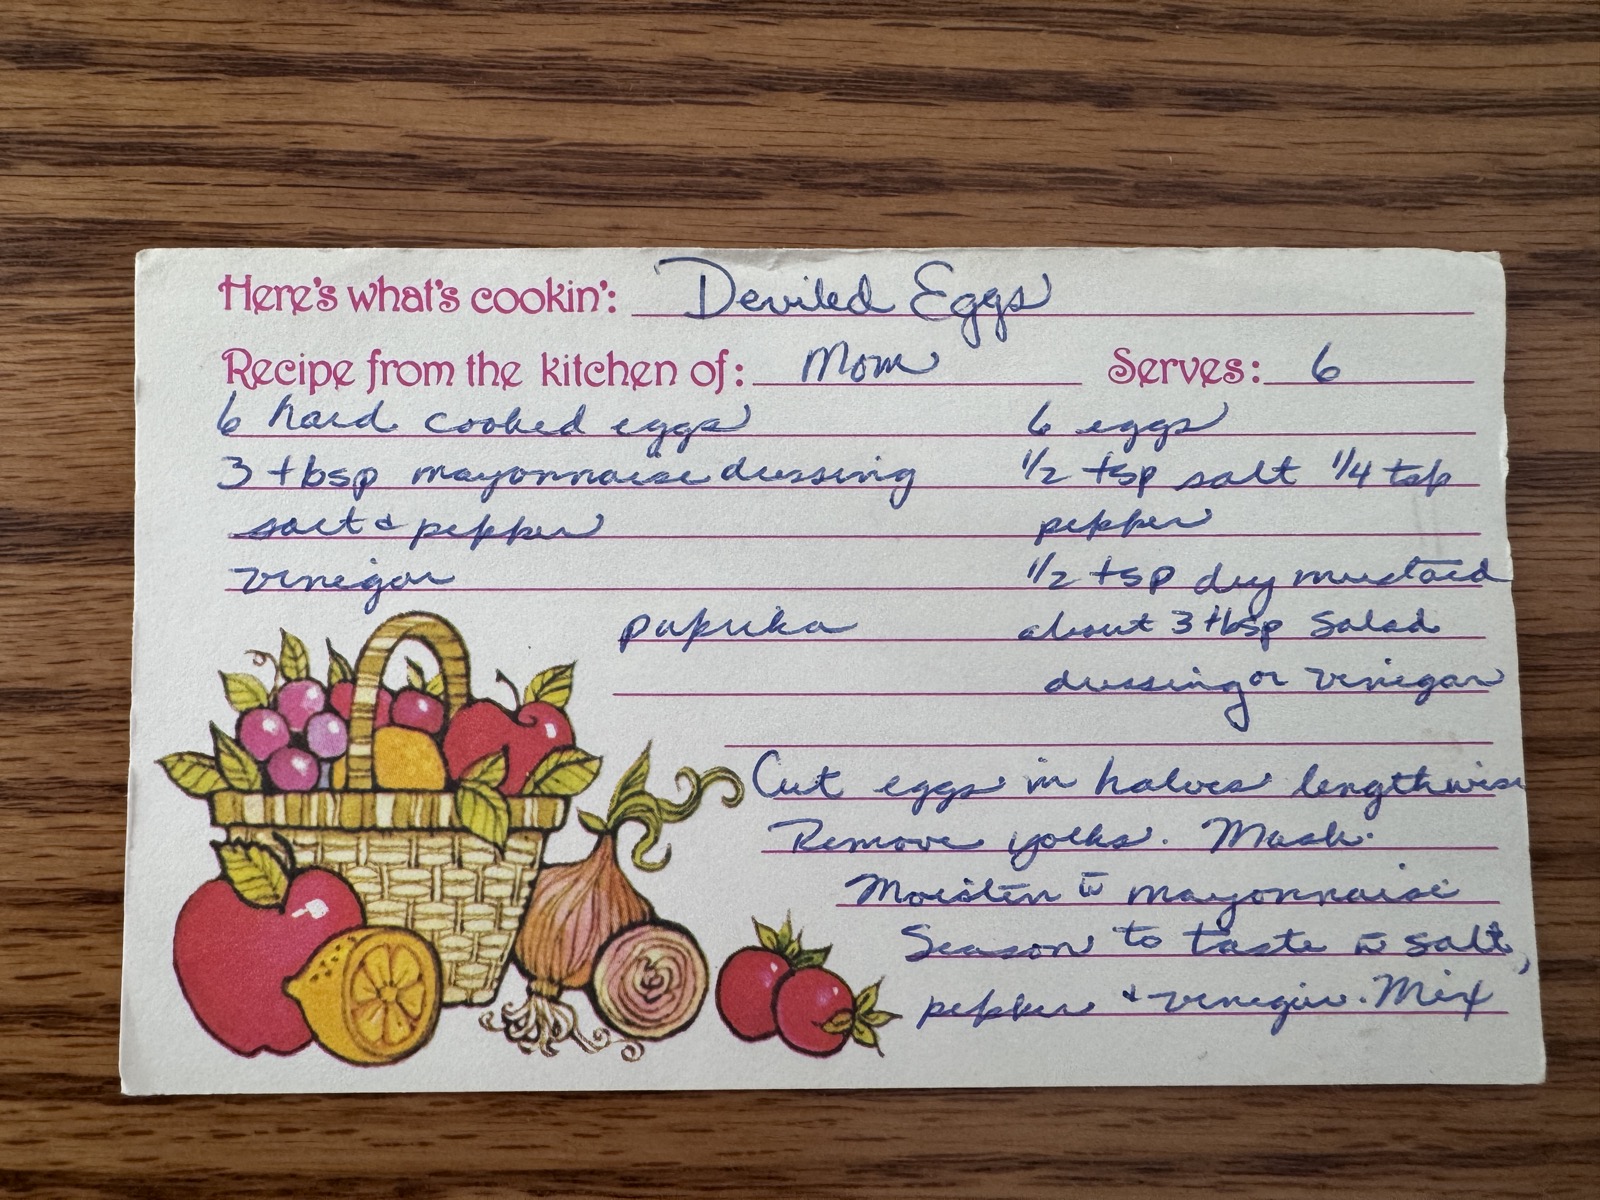 Here's what's cookin': Deviled Eggs
Recipe from the kitchen of: Mom Serves: 6
6 hard cooked eggs
3 tbsp mayonnaise dressing
salt & pepper
vinegar
paprika
6 eggs
1/2 tsp salt 1/4 tsp
pepper
1/2 tsp dry mustard
about 3 tbsp salad
dressing or vinegar
Cut eggs in halves lengthwise
Remove yolks. Mash.
Moisten w̄ mayonnaise
Season to taste w̄ salt,
pepper & vinegar. Mix